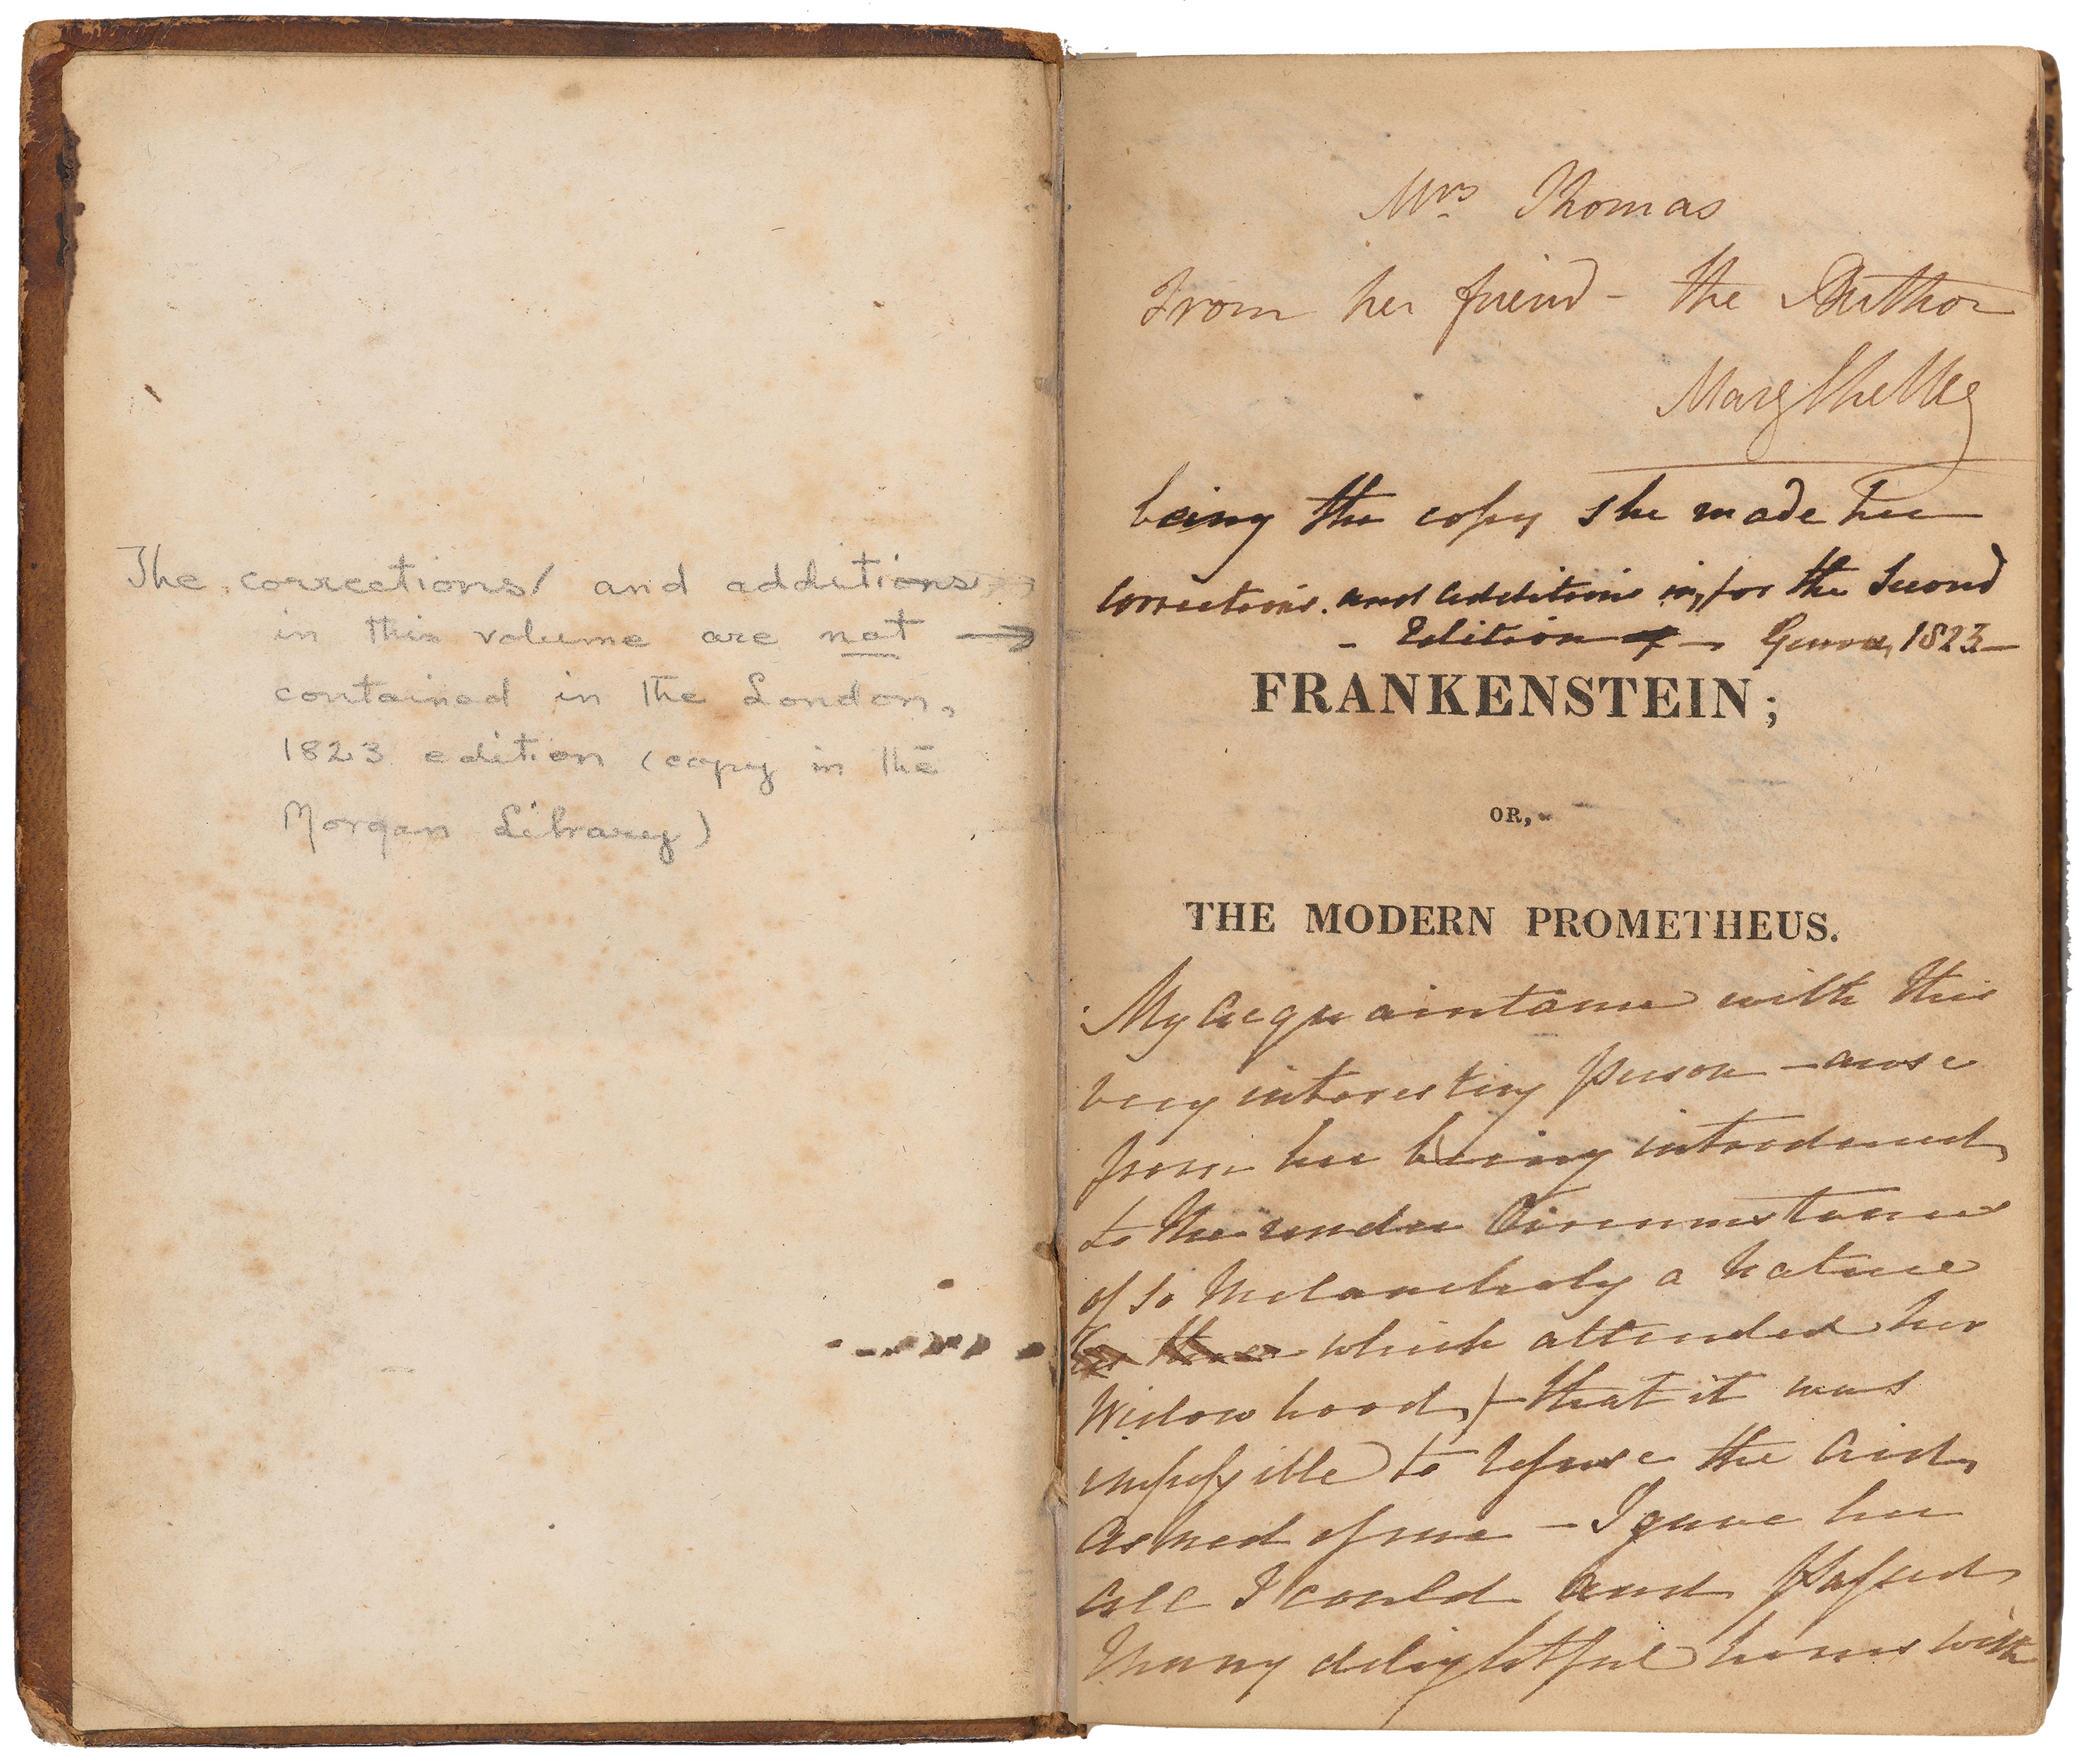 The corrections/ and additions
in this volume are not →
contained in the London,
1823 edition (copy in the
Morgan Library)
Mrs Thomas
From her friend - the Author
Mary Shelley
being the copy she made her
corrections and additions in, for the Second
- Edition of - Genoa, 1823 -
FRANKENSTEIN;
OR,
THE MODERN PROMETHEUS.
My Acquaintance with this
very interesting person - arose
from her being introduced
to me under Circumstances
of so Melancholy a Nature
which attended her
Widowhood, that it was
impossible to refuse the Aid,
asked of me - I gave her
all I could and passed
Many delightful hours with